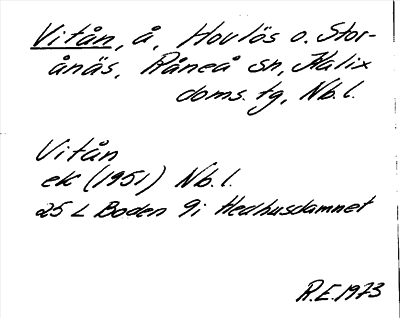 Vitån, å, Hovlös o. Stor-
ånäs, Råneå sn, Kalix
doms. tg, Nb.l.
Vitån
ek (1951) Nb.l.
25 L Boden 9i Hedhusdamnet
R.E. 1973